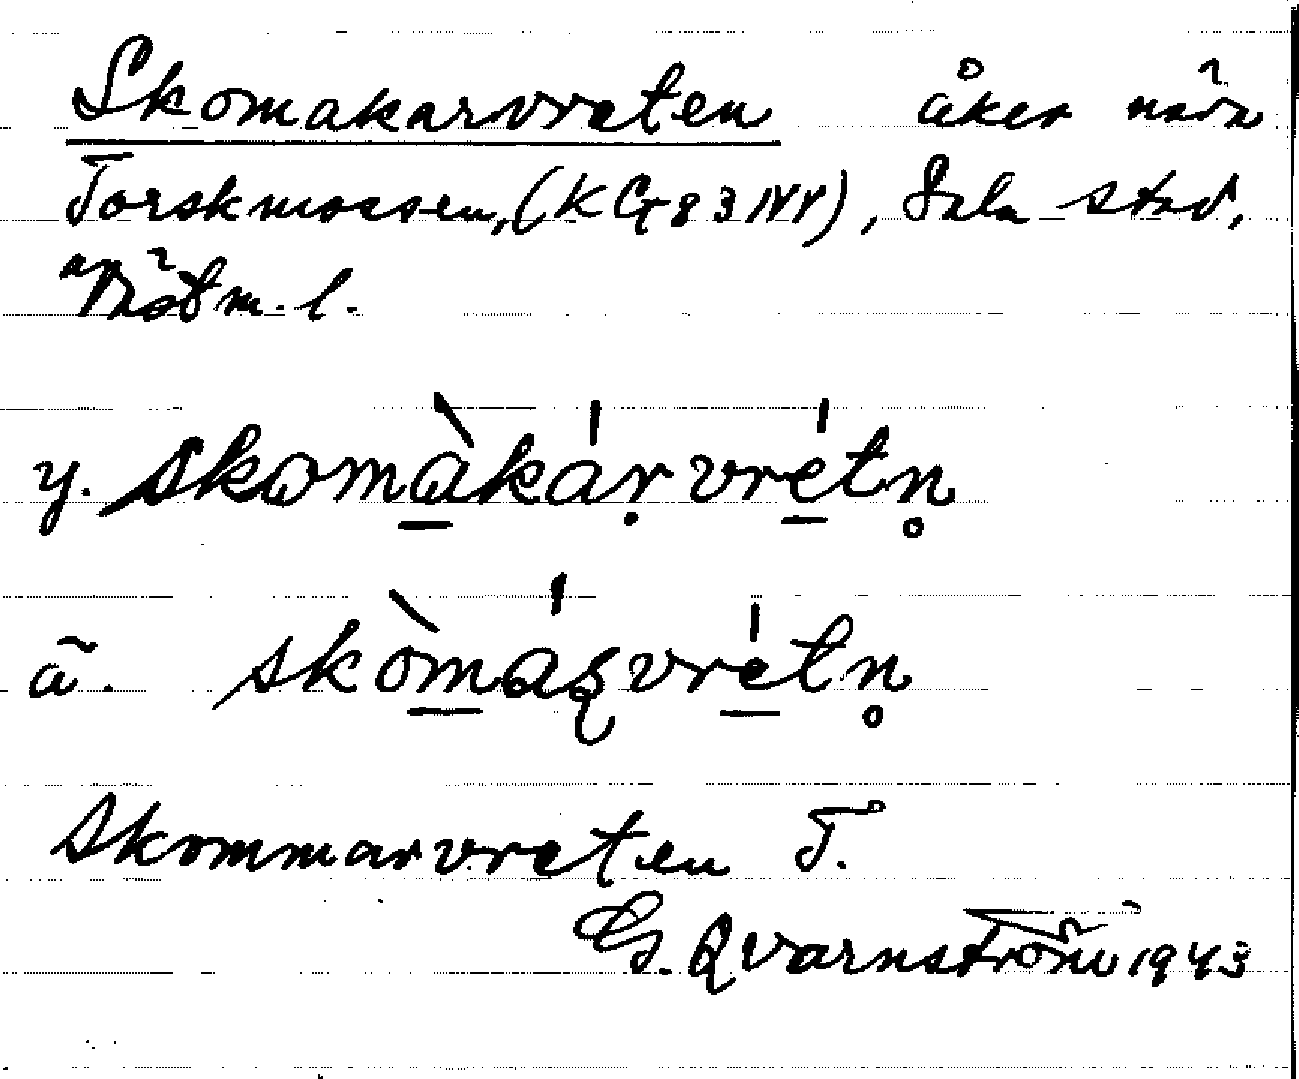 Skomakarvreten åker nära
Torskmossen, (KG 83 NV), Sala stad,
Västm. l.
y. skomàkárvrétn̥
ä. skòmárvrétn̥
Skommarvreten T.
G. Qvarnström 1943